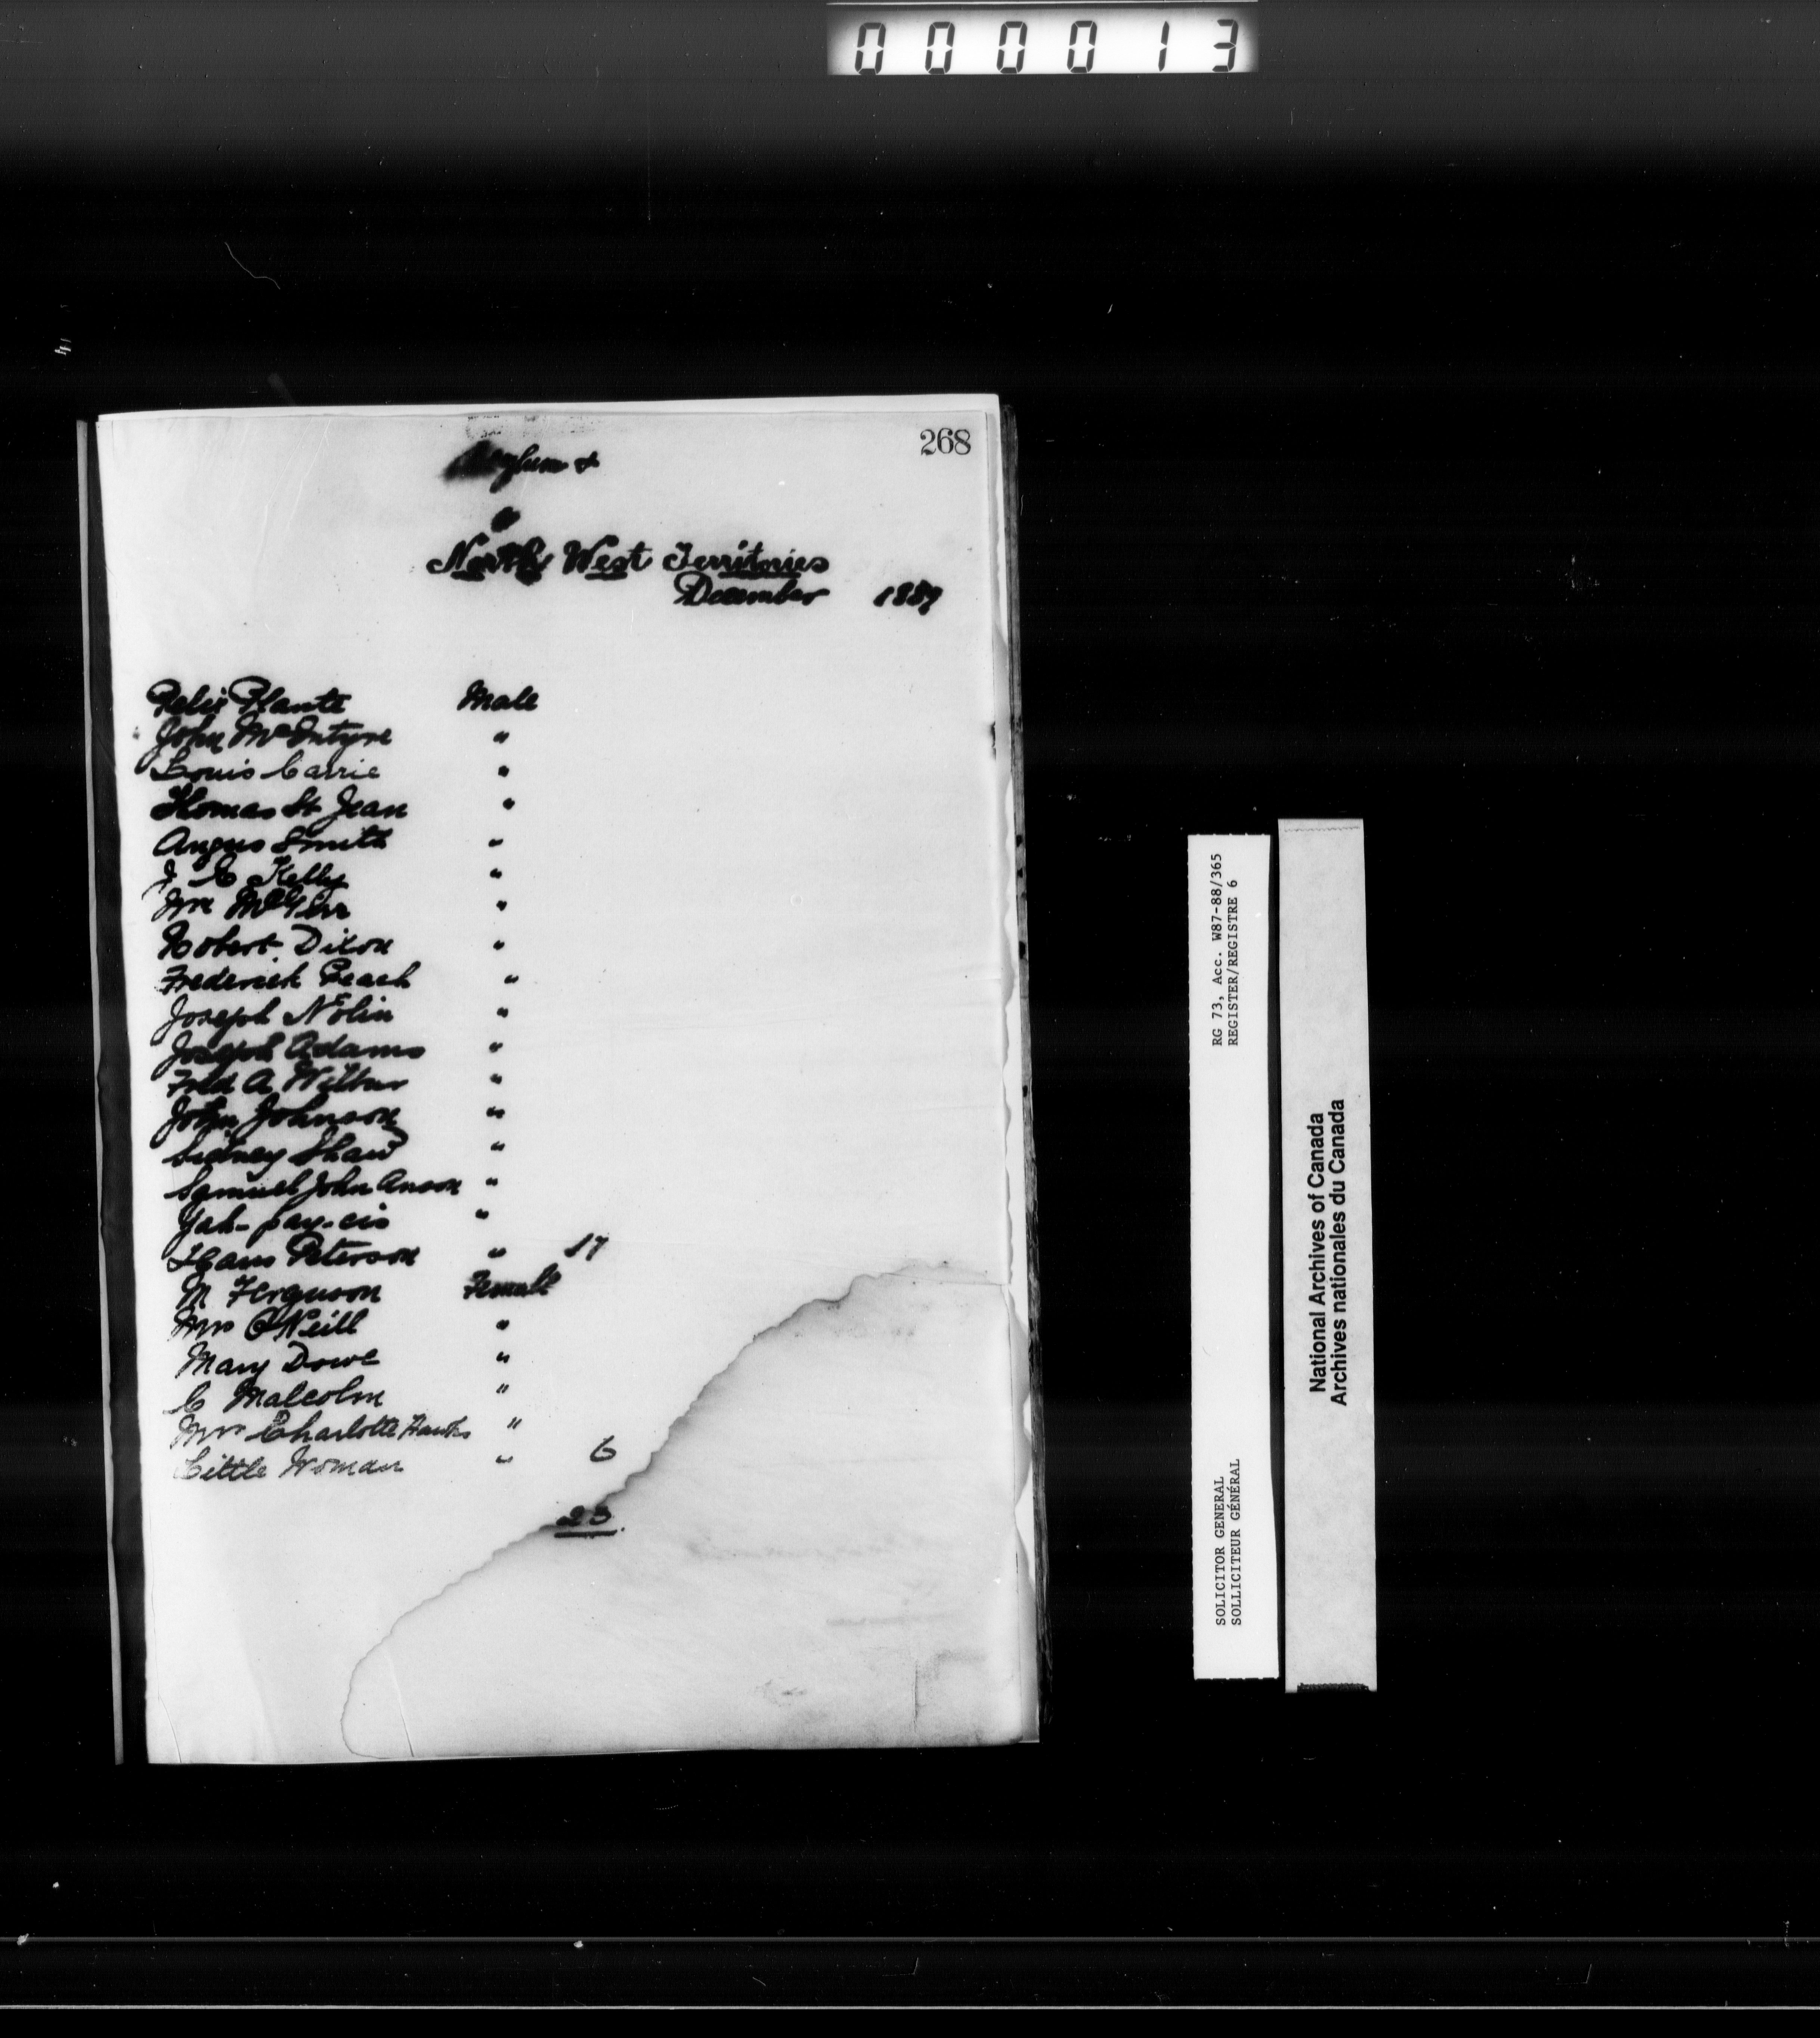 000013
268
Asylum &
North West Territories
December 1889
Felix Plante Male
John McIntyre "
Louis Carrie "
Thomas St Jean "
Angus Smith "
J C Kelly "
Wm "
Robert Dixon "
Frederick Peach "
Joseph Nolin "
Joseph Adams "
Fred A Wilbur "
John Johnson "
Sidney Shaw "
Samuel John Anson "
Yah-pay-cis "
Hans Peterson " 17
M Ferguson Female
Mrs O'Neill "
Mary Dowe "
C Malcolm "
Mrs Charlotte "
Little Woman " 6
23
RG 73, Acc. W87-88/365
REGISTER/REGISTRE 6
SOLICITOR GENERAL
SOLLICITEUR GÉNÉRAL
National Archives of Canada
Archives nationales du Canada